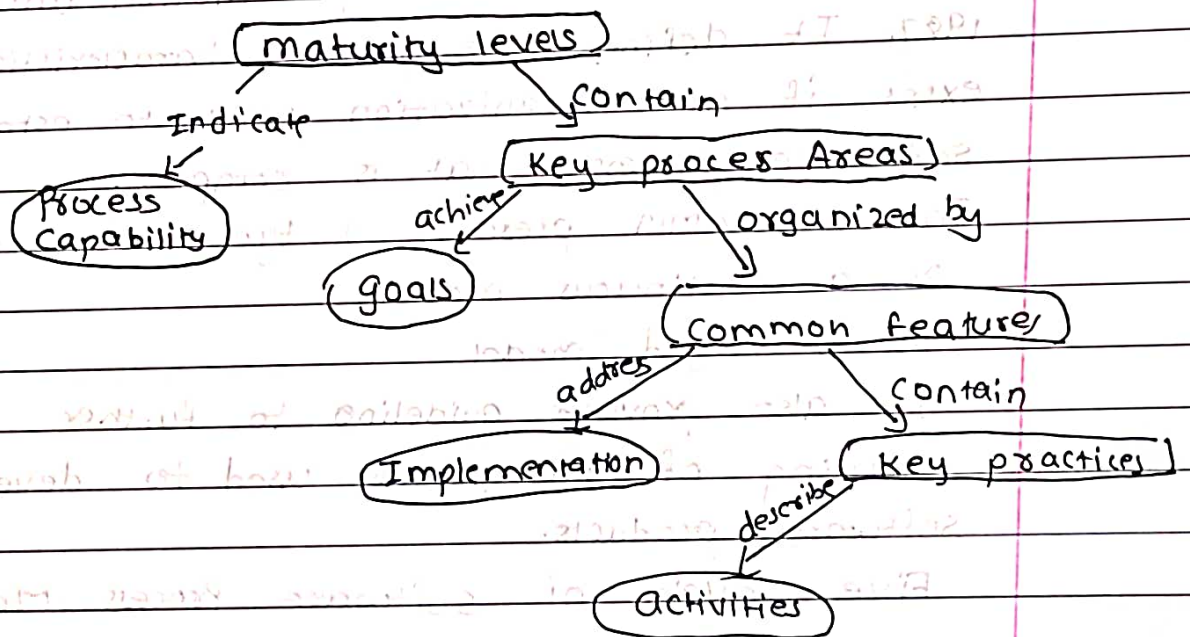 maturity levels
Indicate
contain
Key proces Areas
Process
Capability
achieve
organized by
goals
Common features
addres
contain
Implementation
Key practices
describe
activities